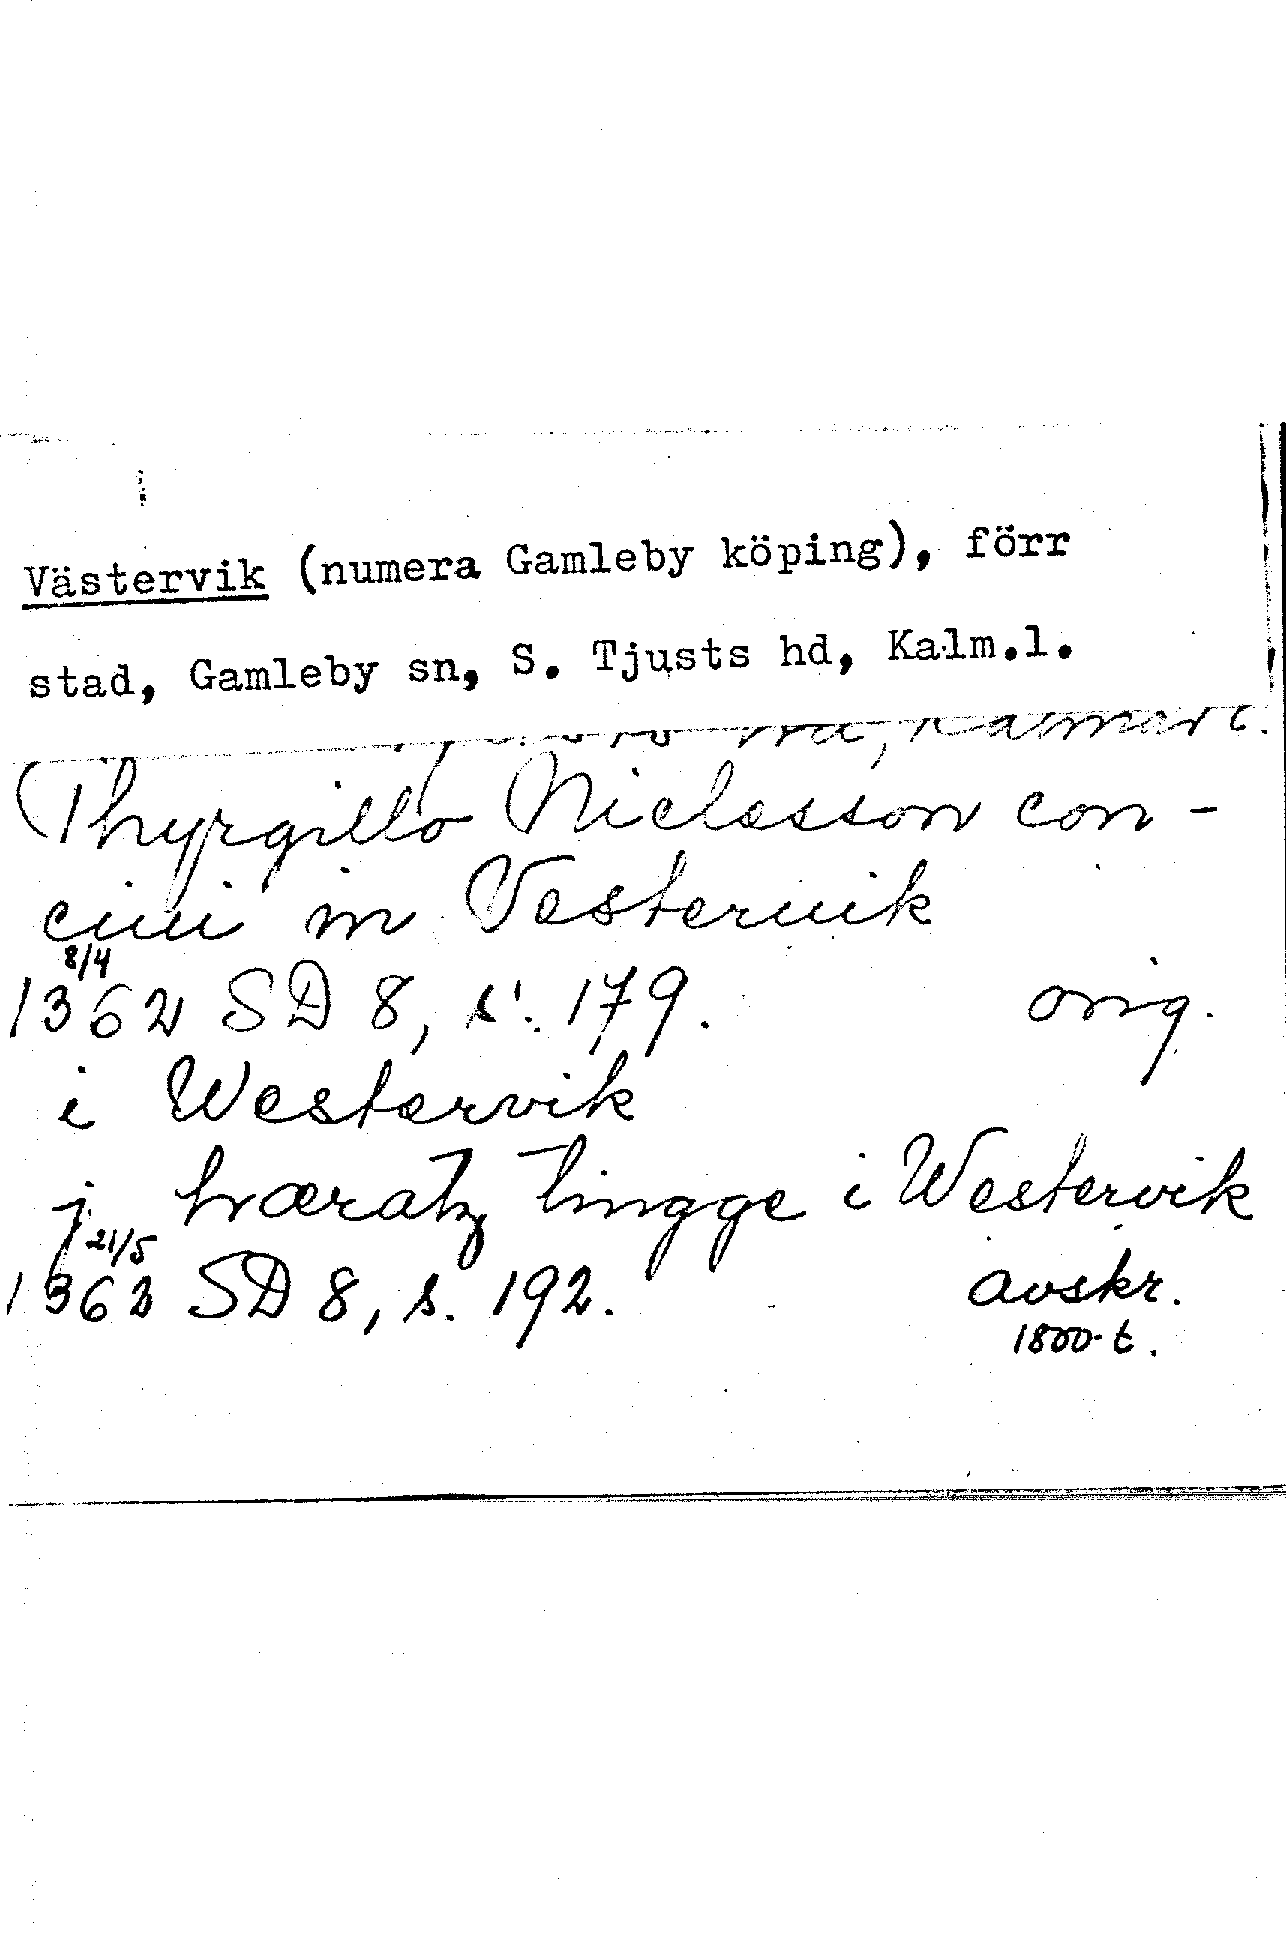 Västervik (numera Gamleby köping), förr
stad, Gamleby sn, S. Tjusts hd, Kalm.l.
Kalmar l.
Thyrgillo Niclesson con-
ciui in Vesteruik
8/4
1362 SD 8, s. 179. orig.
i Westervik
j hværatz tingge i Westervik
21/5
1362 SD 8, s. 192. avskr.
1800-t.